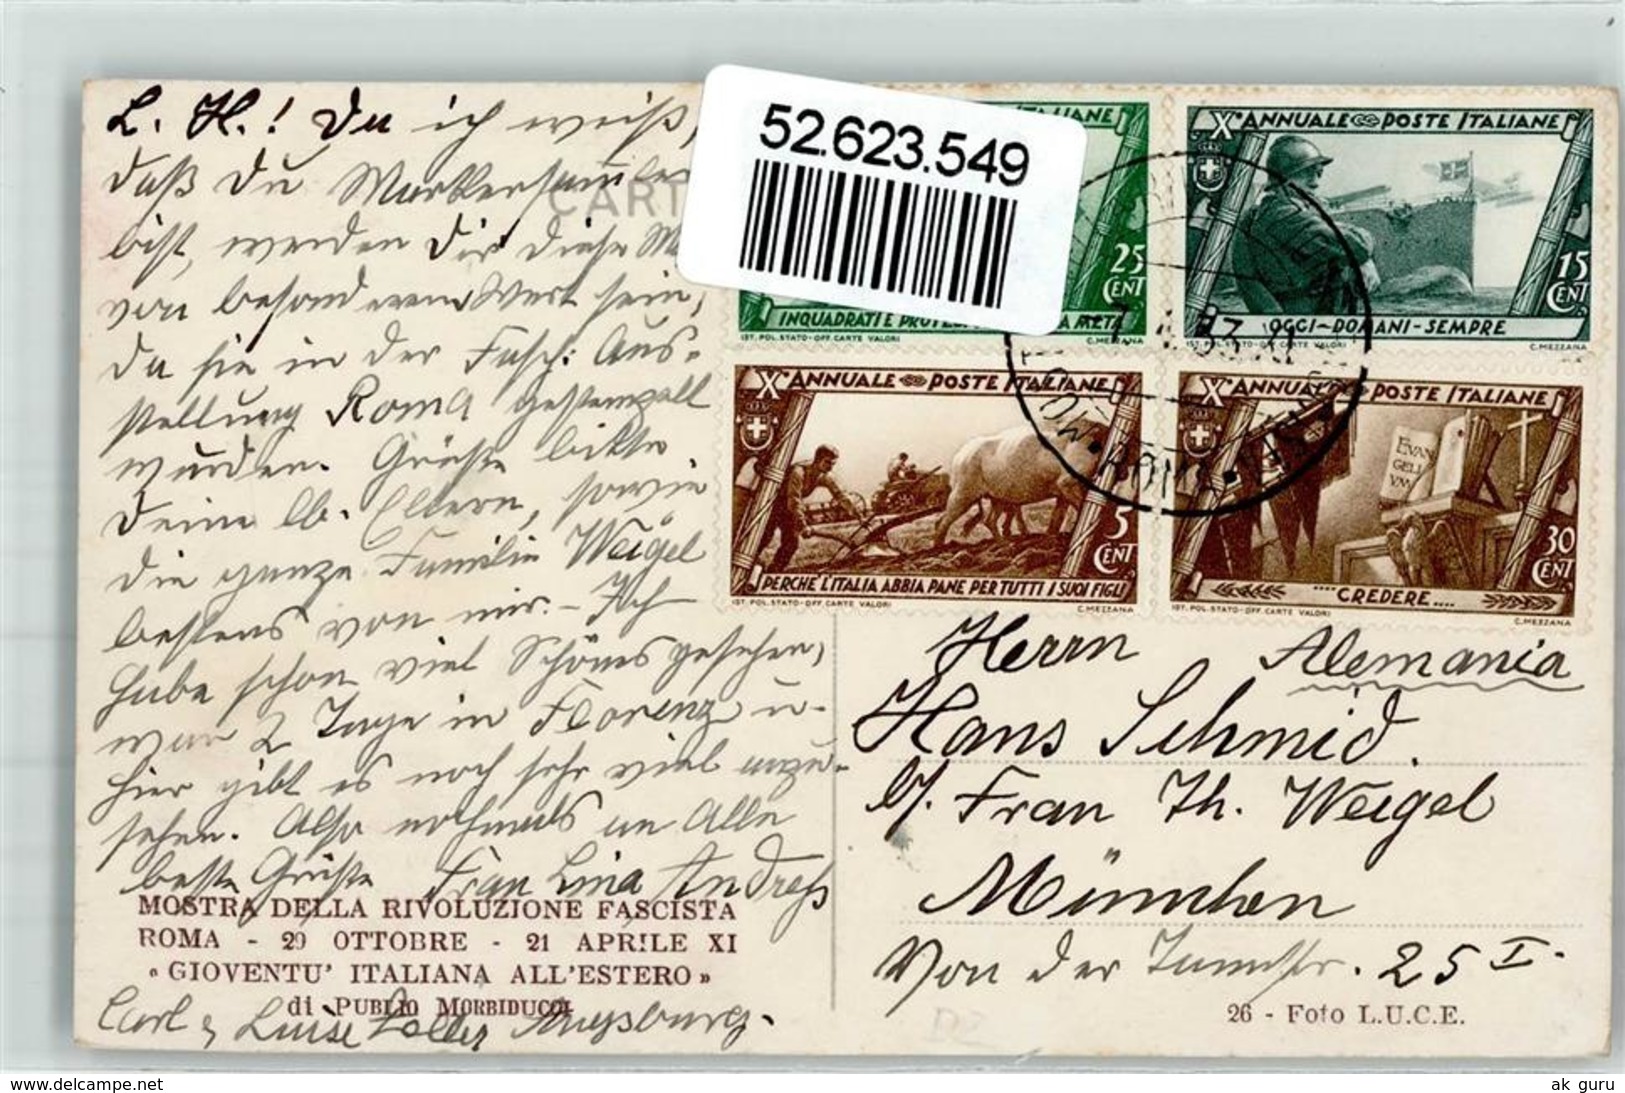 L. H.! Da ich weiß,
daß Du Markensammler
bist, werden Dir diese
von besonderem Wert sein,
da sie in der Fasch. Aus-
stellung Roma gestempelt
wurden. Grüße bitte
Deine lb. Eltern, sowie
die ganze Familie Weigel
bestens von mir. – Ich
habe schon viel Schönes gesehen,
war 2 Tage in Florenz u.
hier gibt es noch sehr viel anzu-
sehen. Also nochmals an Alle
beste Grüße Frau Lina
MOSTRA DELLA RIVOLUZIONE FASCISTA
ROMA - 29 OTTOBRE - 21 APRILE XI
« GIOVENTU' ITALIANA ALL'ESTERO »
di PUBLIO MORBIDUCCI
Carl & Luise Augsburg.
CART
52.623.549
ANNUALE
25 CENT
INQUADRATI E
META
IST. POL. STATO - OFF. CARTE VALORI C. MEZZANA
X° ANNUALE POSTE ITALIANE
15 CENT
OGGI ~ DOMANI - SEMPRE
IST. POL. STATO - OFF. CARTE VALORI C. MEZZANA
X° ANNUALE POSTE ITALIANE
5 CENT
PERCHE L'ITALIA ABBIA PANE PER TUTTI I SUOI FIGLI
IST. POL. STATO - OFF. CARTE VALORI C. MEZZANA
X° ANNUALE POSTE ITALIANE
EVAN
GELI
VM
30 CENT
....CREDERE....
IST. POL. STATO - OFF. CARTE VALORI C. MEZZANA
ROMA
Herrn Alemania
Hans Schmid.
b/. Frau Th. Weigel
München
Von der Tannstr. 25 I.
26 - Foto L.U.C.E.
www.akpool.de
ak guru